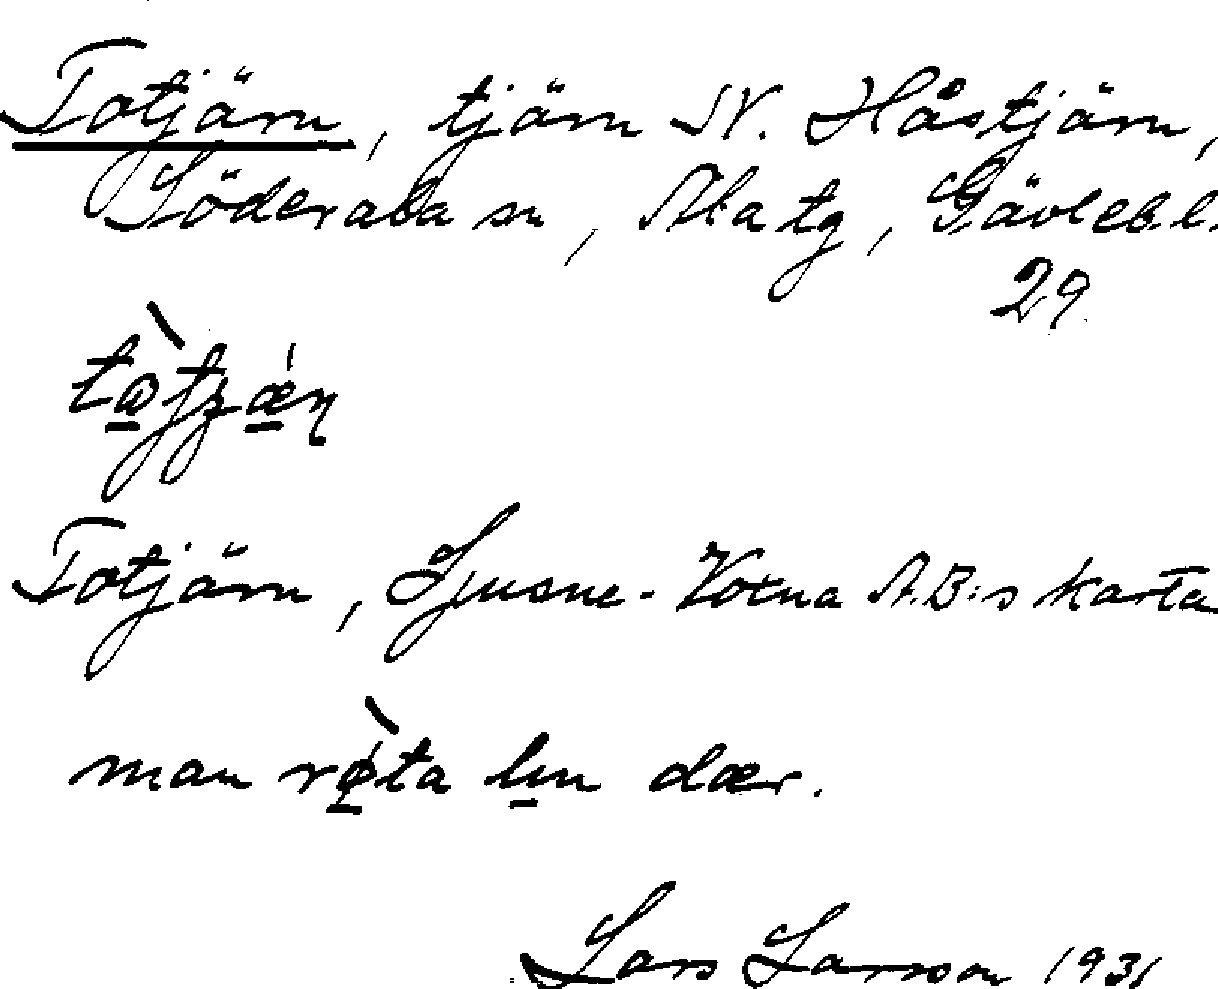 Totjärn, tjärn N. Håstjärn,
Söderala sn, Ala tg, Gävleb.l.
29.
Totjärn, Ljusne-Voxna A.B:s karta
man rø̀ta lin dær.
Lars Larsson 1931